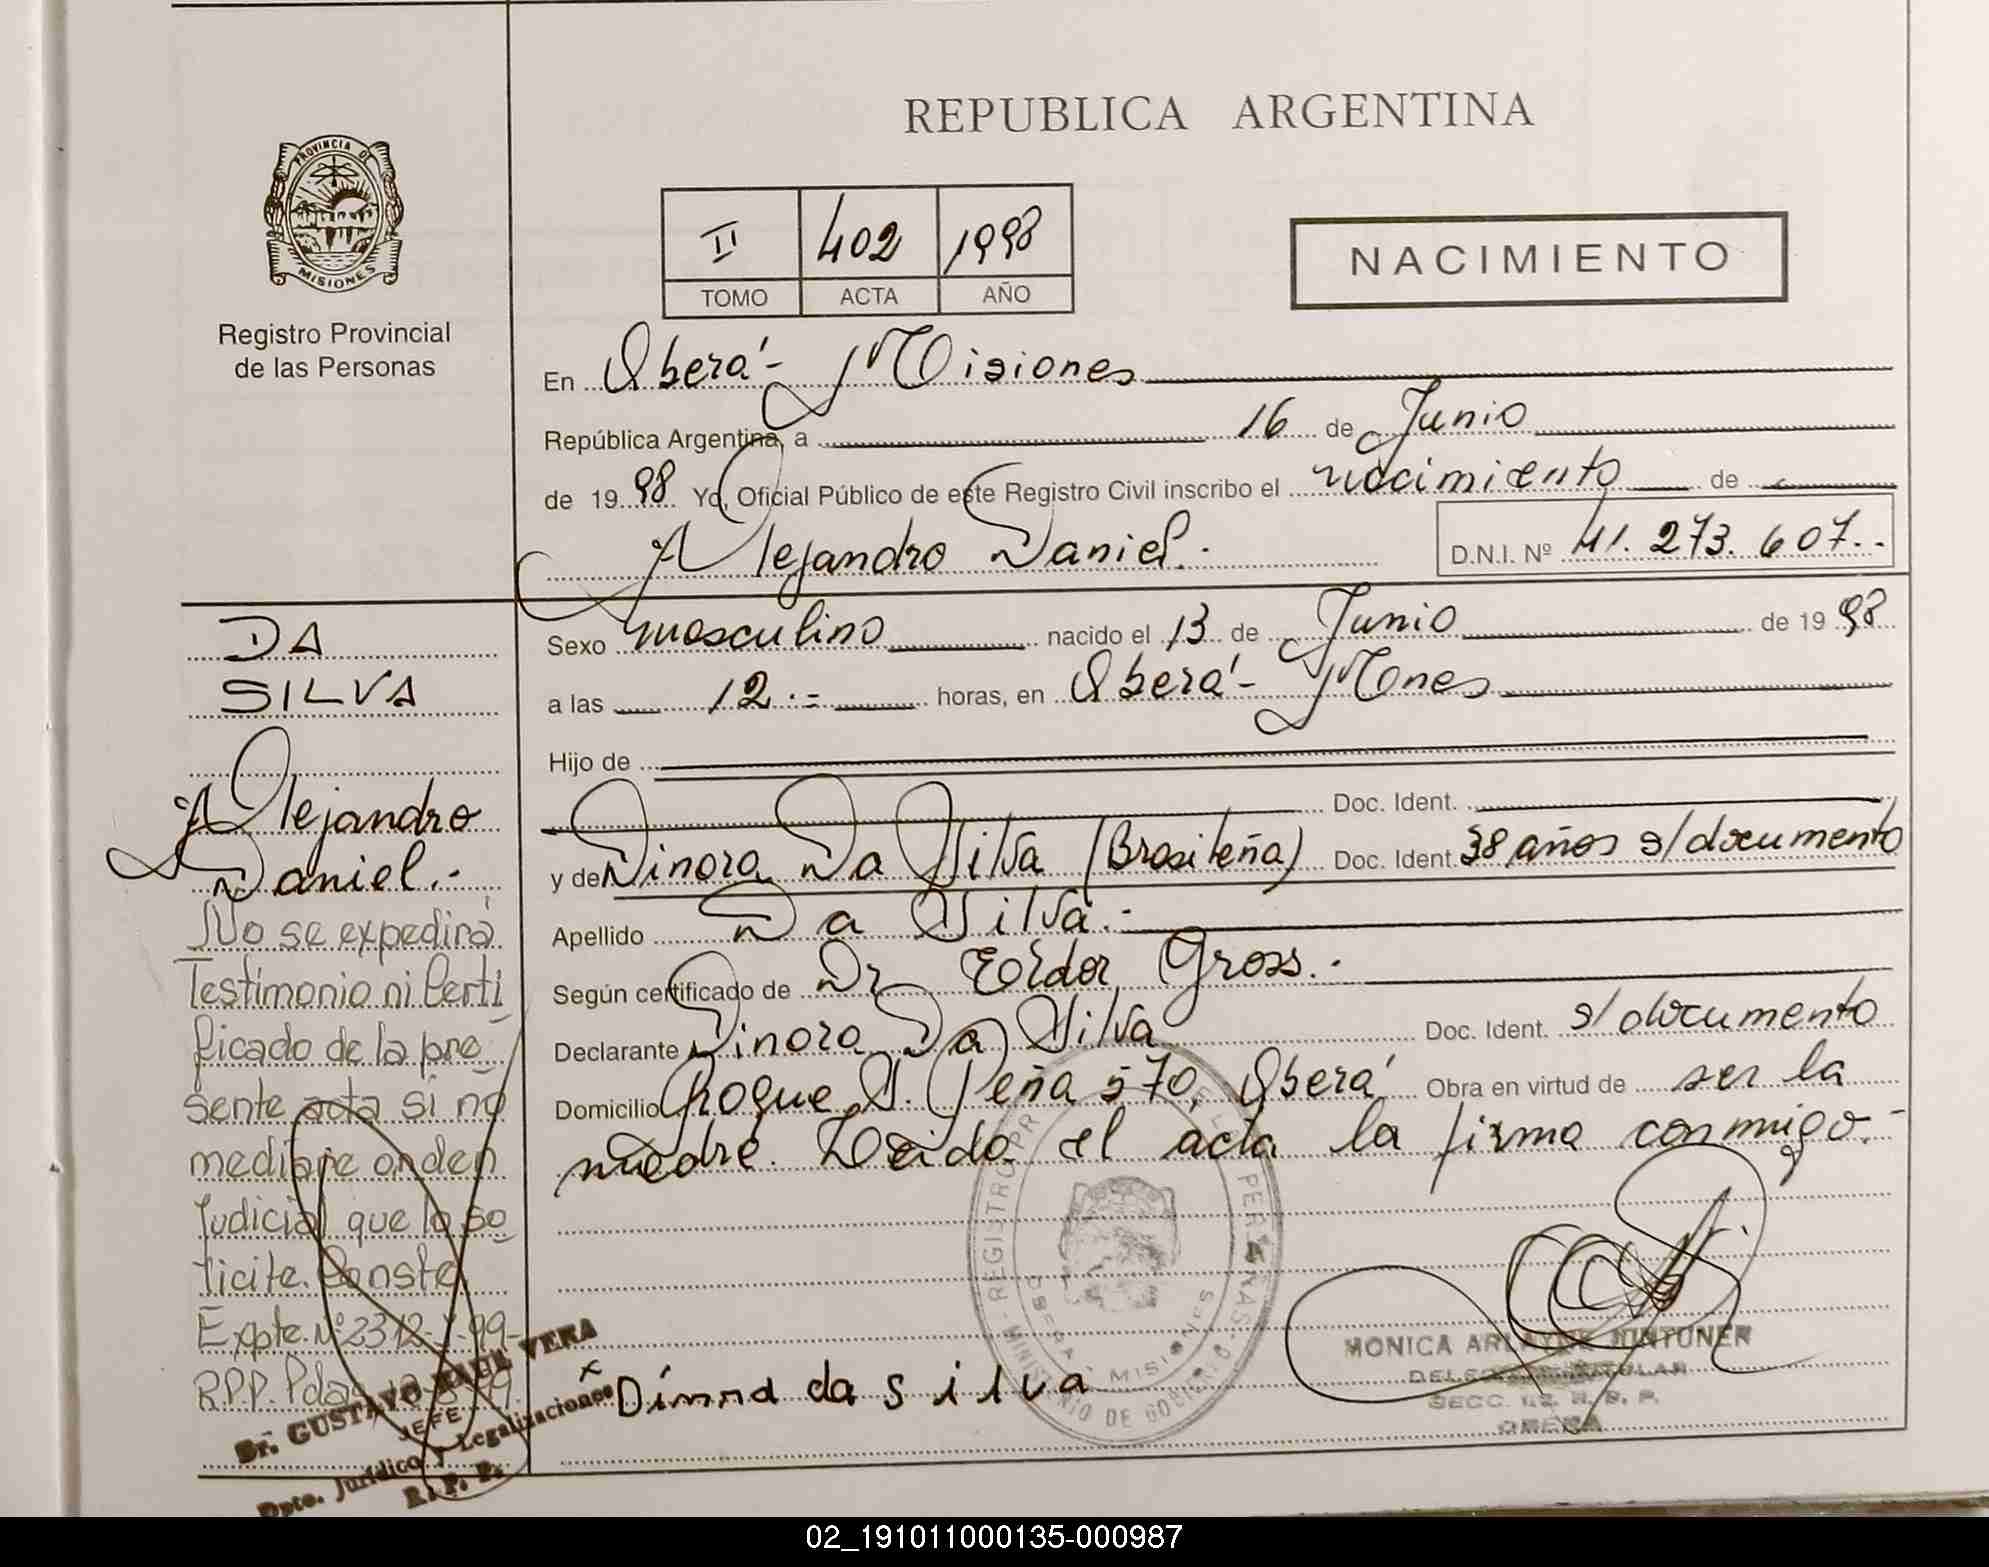 REPUBLICA ARGENTINA
PROVINCIA DE
MISIONES
Registro Provincial
de las Personas
II 402 1998
TOMO ACTA AÑO
NACIMIENTO
En Oberá - Misiones
República Argentina, a 16 de Junio
de 1998 Yo, Oficial Público de este Registro Civil inscribo el nacimiento de
Alejandro Daniel.
D.N.I. Nº 41.273.607..
Sexo masculino nacido el 13 de Junio de 1998
a las 12.= horas, en Oberá - Mones
Hijo de
Doc. Ident.
y de Dinora Da Silva (Brasileña) Doc. Ident. 38 años s/documento
Apellido Da Silva.-
Según certificado de Dr Gross.-
Declarante Dinora Da Silva Doc. Ident. s/documento
Domicilio Roque S. Peña 570, Oberá Obra en virtud de ser la
madre. Leida el acta la firma conmigo.-
DA
SILVA
Alejandro
Daniel.-
No se expedirá
Testimonio ni Certi
ficado de la pre
sente acta si no
mediare orden
Judicial que lo so
licite. Conste
Expte. Nº 2312-
R.P.P. Pdas
Dr. GUSTAVO RAUL VERA
JEFE
Dpto. Jurídico y Legalizaciones
R. P. P.
x Dinnra da silva
MONICA
SECC.
OBERA
REGISTRO
MINISTERIO DE GOBIERNO
OBERA - MISIONES
02_191011000135-000987